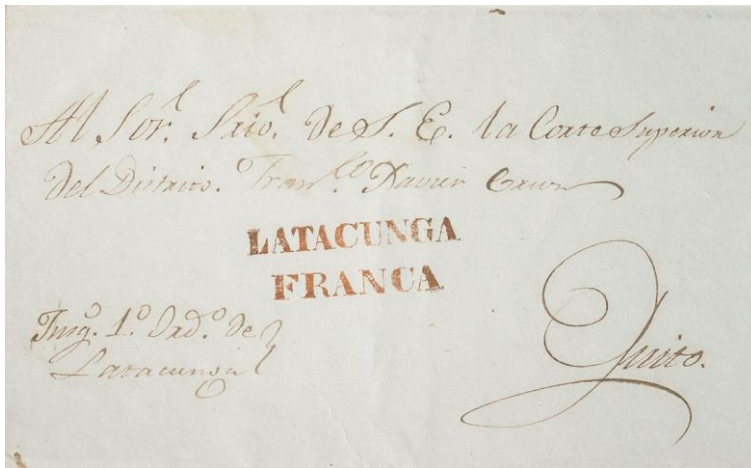 Al Sor. Srio. de S. E. la Corte Superior
del Distrito. Franco. Xavier
LATACUNGA
FRANCA
1º. Ord.º de
Latacunga
Quito.